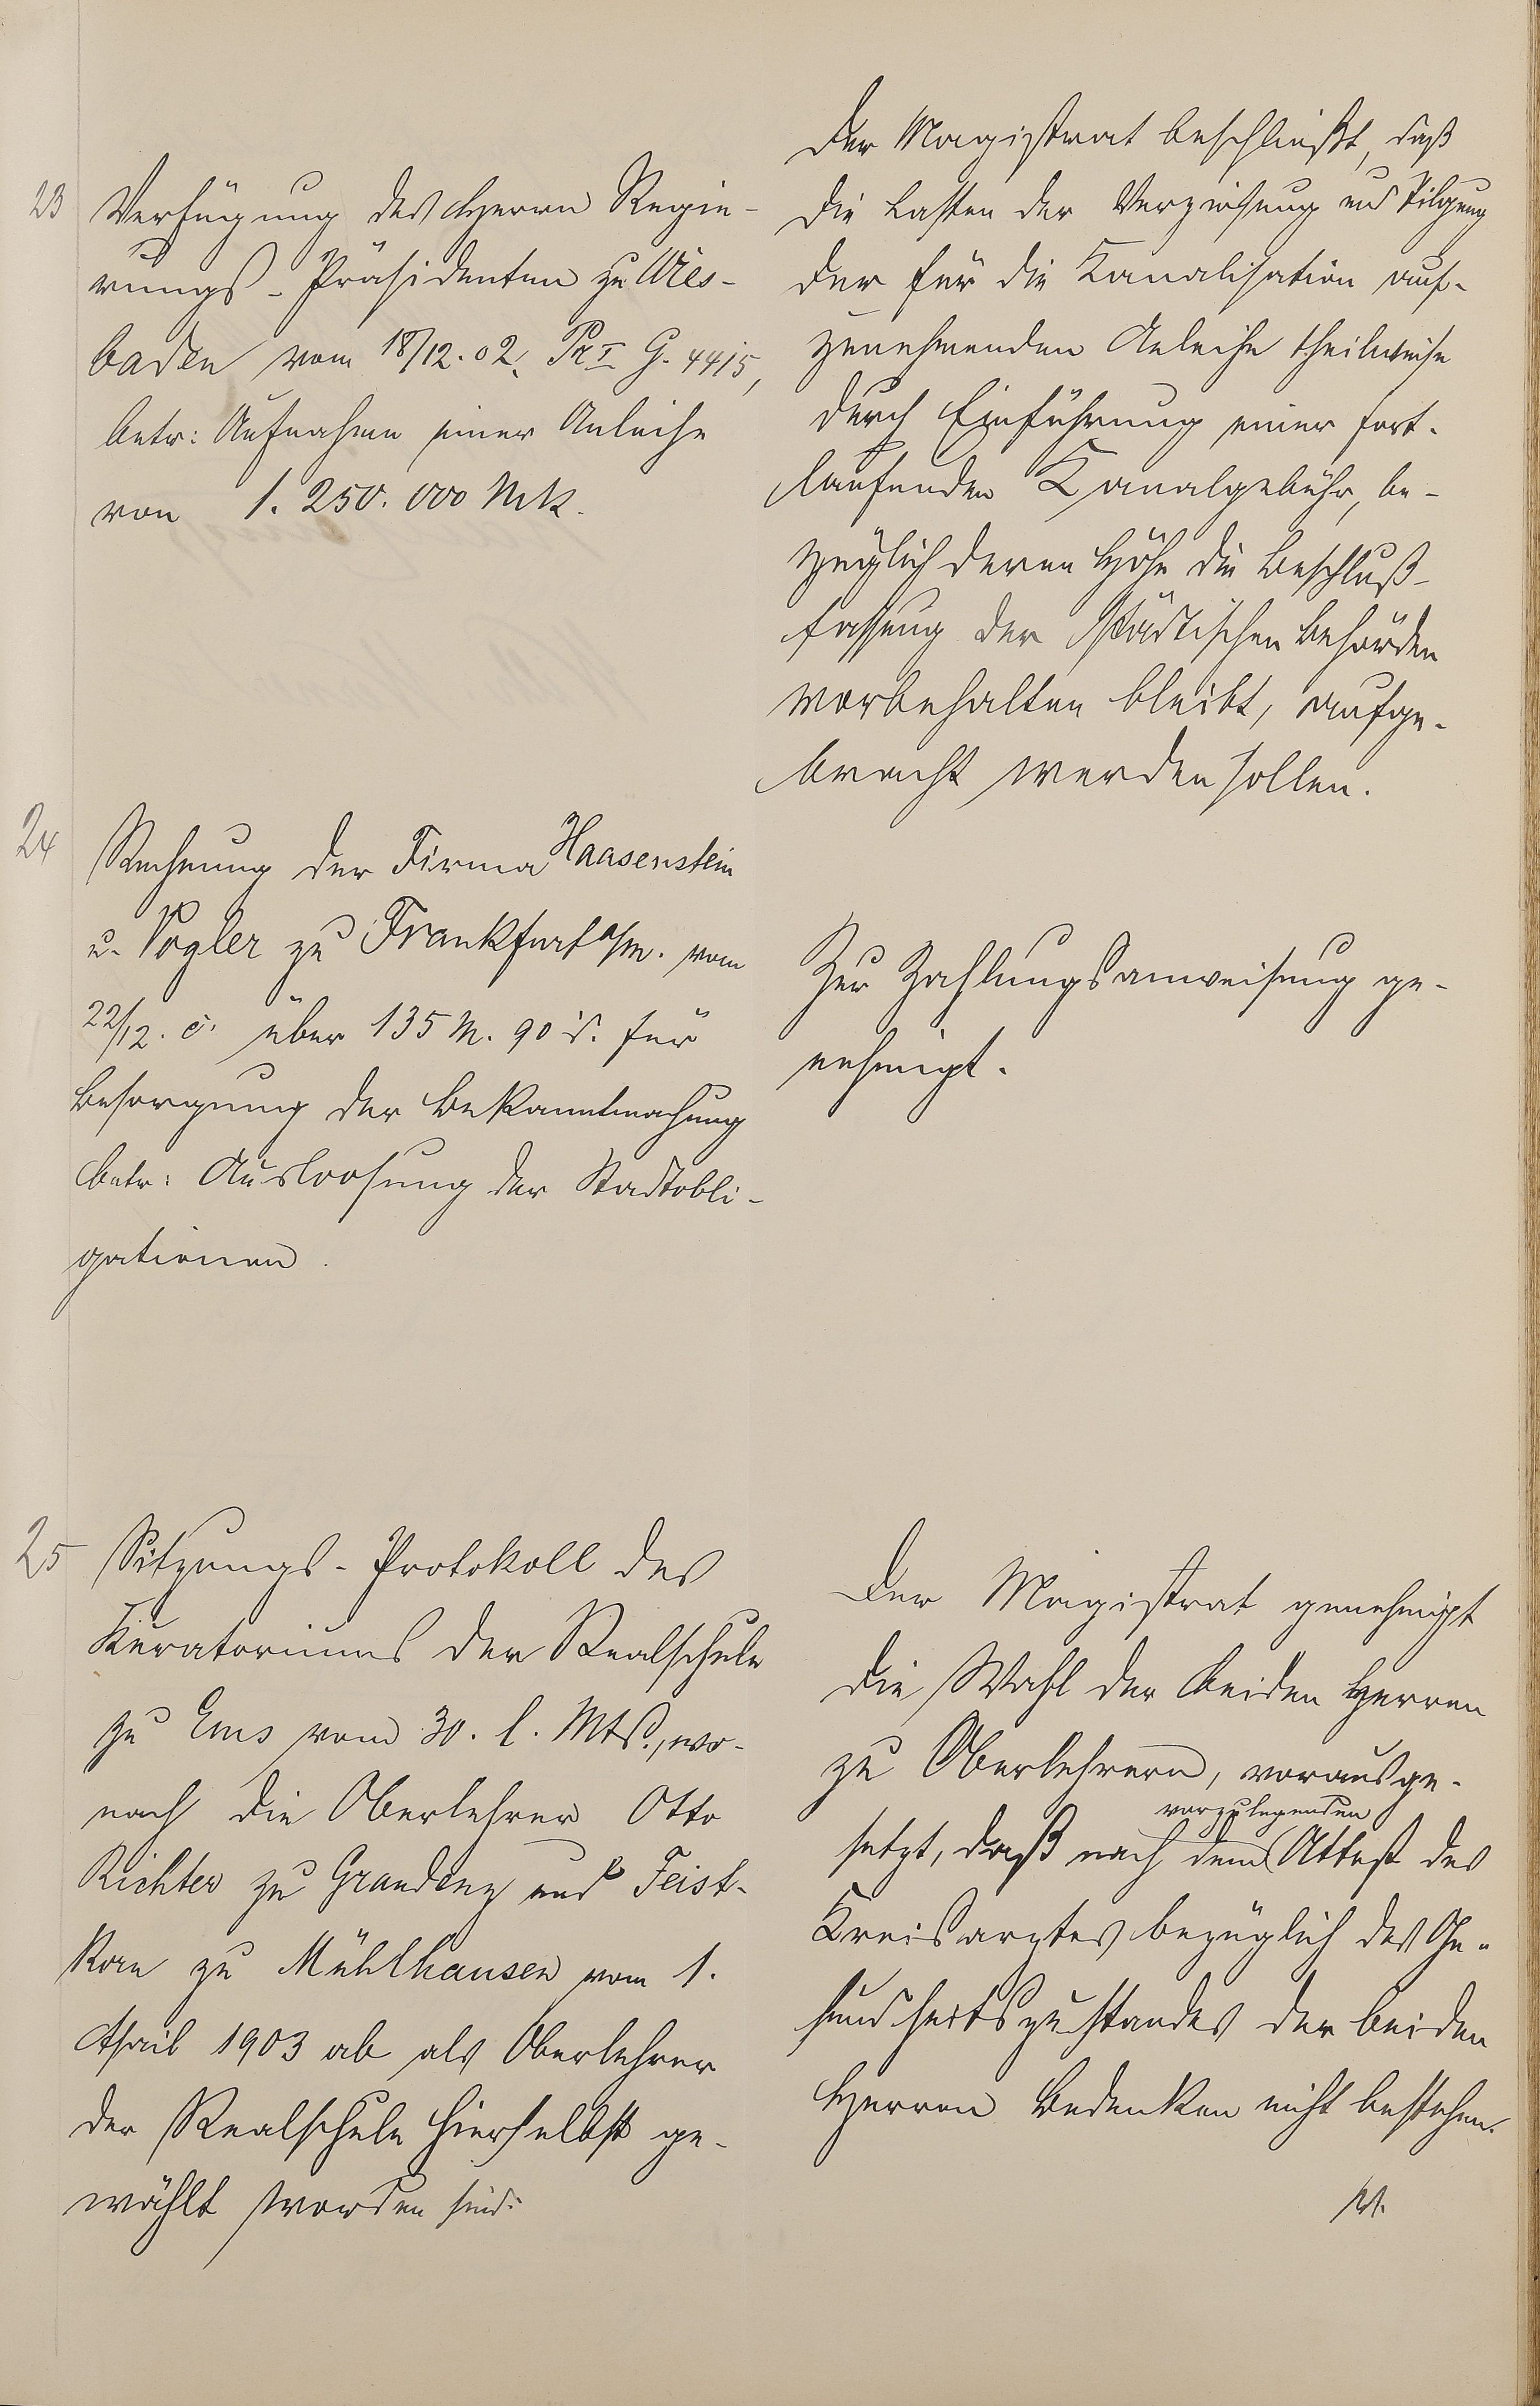 23
Verfügung des Herrn Regie-
rungs-Präsidenten zu Wies-
baden vom 18/12.02. Pr I G. 4415,
betr: Aufnahme einer Anleihe
von 1.250.000 Mk.
Der Magistrat beschließt, daß
die Lasten der Verzinsung und Tilgung
der für die Kanalisation auf-
zunehmenden Anleihe theilweise
durch Einführung einer fort-
laufenden Kanalgebühr, be-
züglich deren Höhe die Beschluß-
fassung der städtischen Behörden
vorbehalten bleibt, aufge-
bracht werden sollen.
24
Rechnung der Firma Haasenstein
u. Vogler zu Frankfurt a/M. vom
22/12. c. über 135 M. 90 S. für
Besorgung der Bekanntmachung
betr: Ausloosung der Stadtobli-
gationen.
Zur Zahlungsanweisung ge-
nehmigt.
25
Sitzungs-Protokoll des
Kuratoriums der Realschule
zu Ems vom 30. l. Mts., wo-
nach die Oberlehrer Otto
Richter zu Graudenz und Feist-
korn zu Mühlhausen vom 1.
April 1903 ab als Oberlehrer
der Realschule hierselbst ge-
wählt worden sind.
Der Magistrat genehmigt
die Wahl der beiden Herren
zu Oberlehrern, vorausge-
vorzulegenden
setzt, daß nach dem Attest des
Kreisarztes bezüglich des Ge-
sundheitszustandes der beiden
Herren Bedenken nicht bestehen.